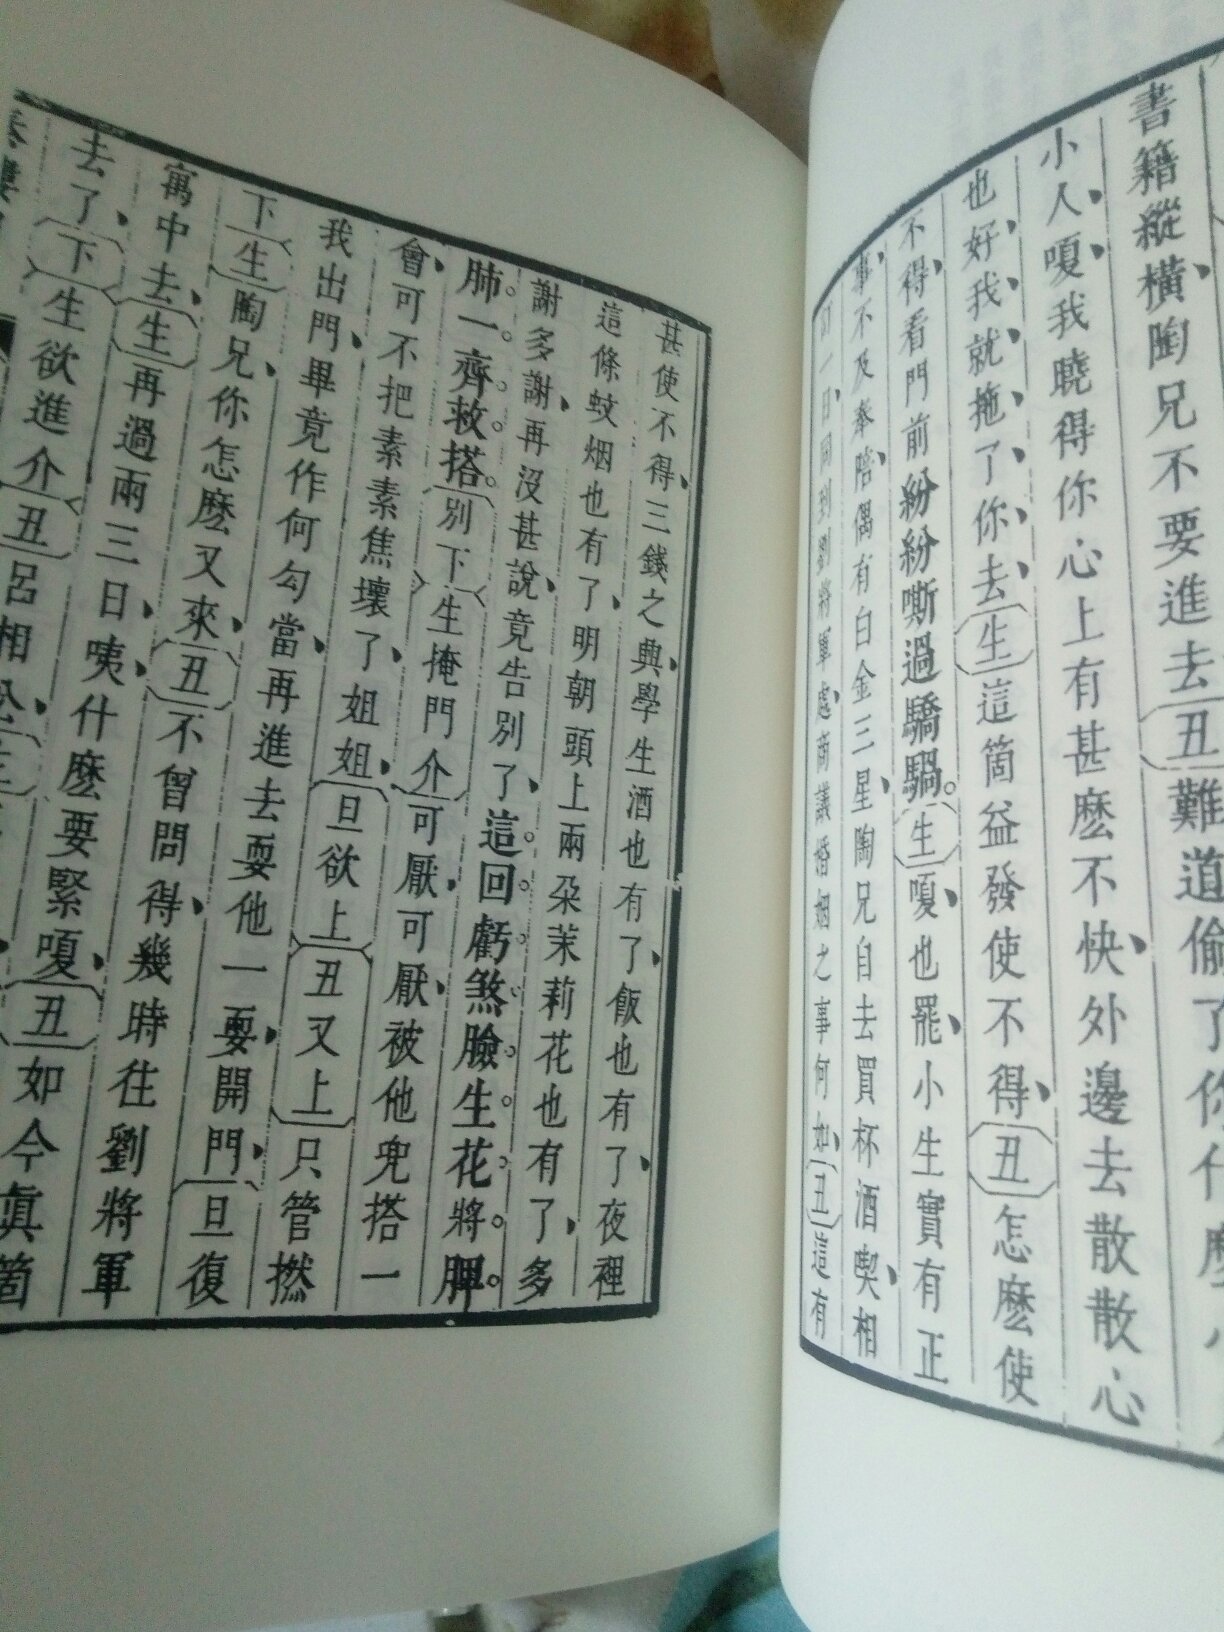 書籍縱橫陶兄不要進去丑難道偷了你什麼小
小人嗄我曉得你心上有甚麽不快外邊去散散心
也好我就拖了你去生這箇益發使不得丑怎麽使
不得看門前紛紛嘶過驕騧生嗄也罷小生實有正
事不及奉陪偶有白金三星陶兄自去買杯酒喫相
一日同到劉將軍處商議婚姻之事何如丑這有
甚使不得三錢之典學生酒也有了飯也有了夜裡
這條蚊烟也有了明朝頭上兩朶茉莉花也有了多
謝多謝再沒甚說竟告別了這回虧煞臉生花將脾
肺一齊救搭別下生掩門介可厭可厭被他兜搭一
會可不把素素焦壞了姐姐旦欲上丑又上只管撚
我出門畢竟作何勾當再進去耍他一耍開門旦復
下生陶兄你怎麽又來丑不曾問得幾時往劉將軍
寓中去生再過兩三日咦什麽要緊嗄丑如今眞箇
去了下生欲進介丑呂相公